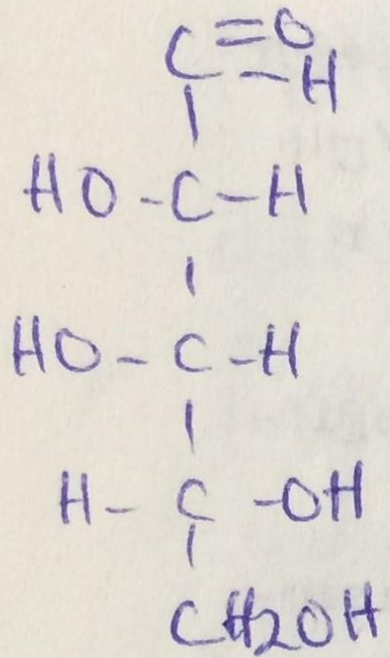 C=O
-H
|
HO-C-H
|
HO-C-H
|
H-C-OH
|
CH2OH